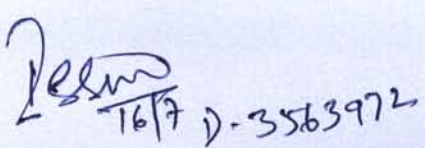 16/7 D-3563972